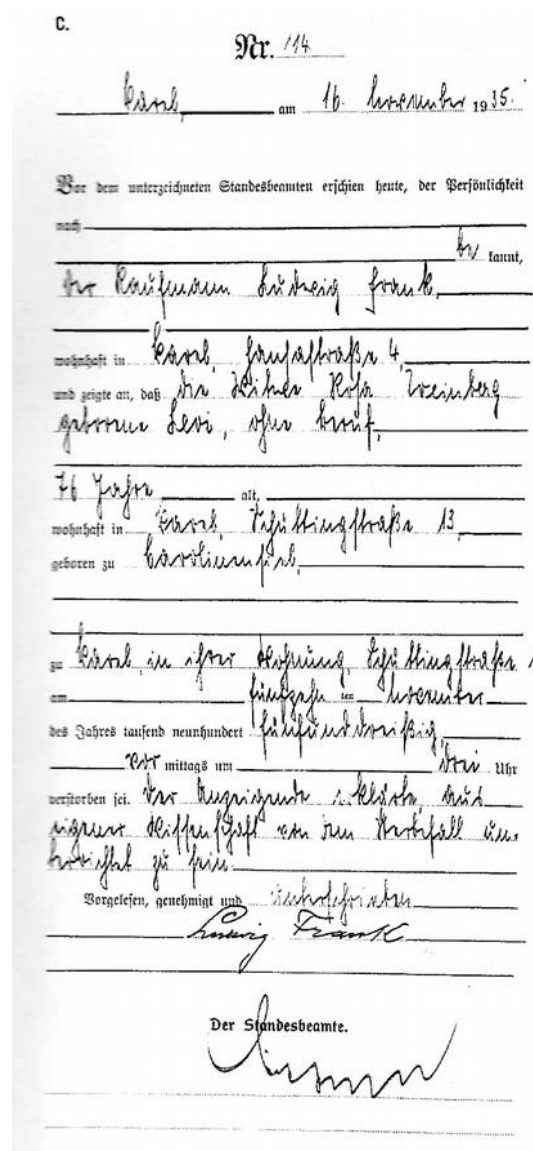 C.
Nr. 114
Varel, am 16. November 1935.
Vor dem unterzeichneten Standesbeamten erschien heute, der Persönlichkeit
nach
be kannt,
der Kaufmann Ludwig Frank,
wohnhaft in Varel, Hansastraße 4,
und zeigte an, daß die Witwe Rosa Weinberg
geborene Levi, ohne Beruf,
76 Jahre alt,
wohnhaft in Varel, Schüttingstraße 13,
geboren zu Carolinensiel,
zu Varel, in ihrer Wohnung, Schüttingstraße
am fünfzehn ten November
des Jahres tausend neunhundert fünfunddreißig,
vor mittags um drei Uhr
verstorben sei. Der Anzeigende erklärte, aus
eigener Wissenschaft von dem Sterbefall un-
terrichtet zu sein.
Vorgelesen, genehmigt und unterschrieben
Ludwig Frank
Der Standesbeamte.